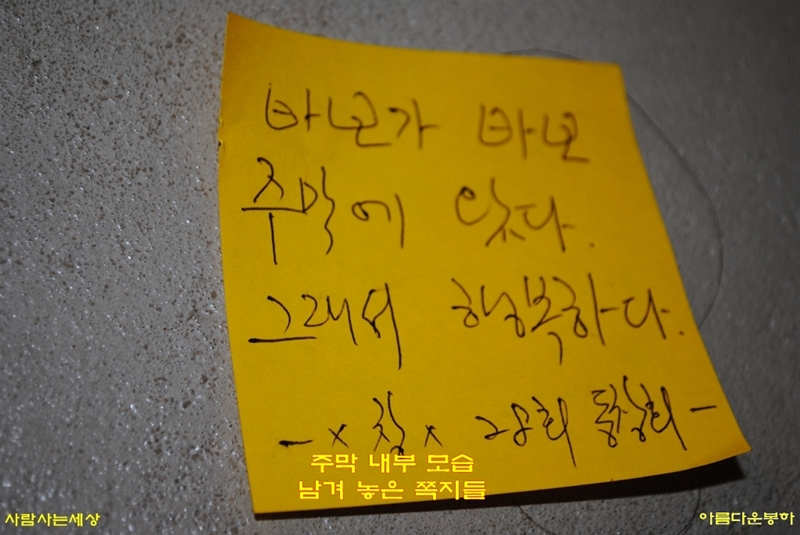 바보가 바보
주막에 있다.
그래서 행복하다.
- x 참 x 28회 동창회 -
주막 내부 모습
남겨 놓은 쪽지들
사람사는세상
아름다운봉하